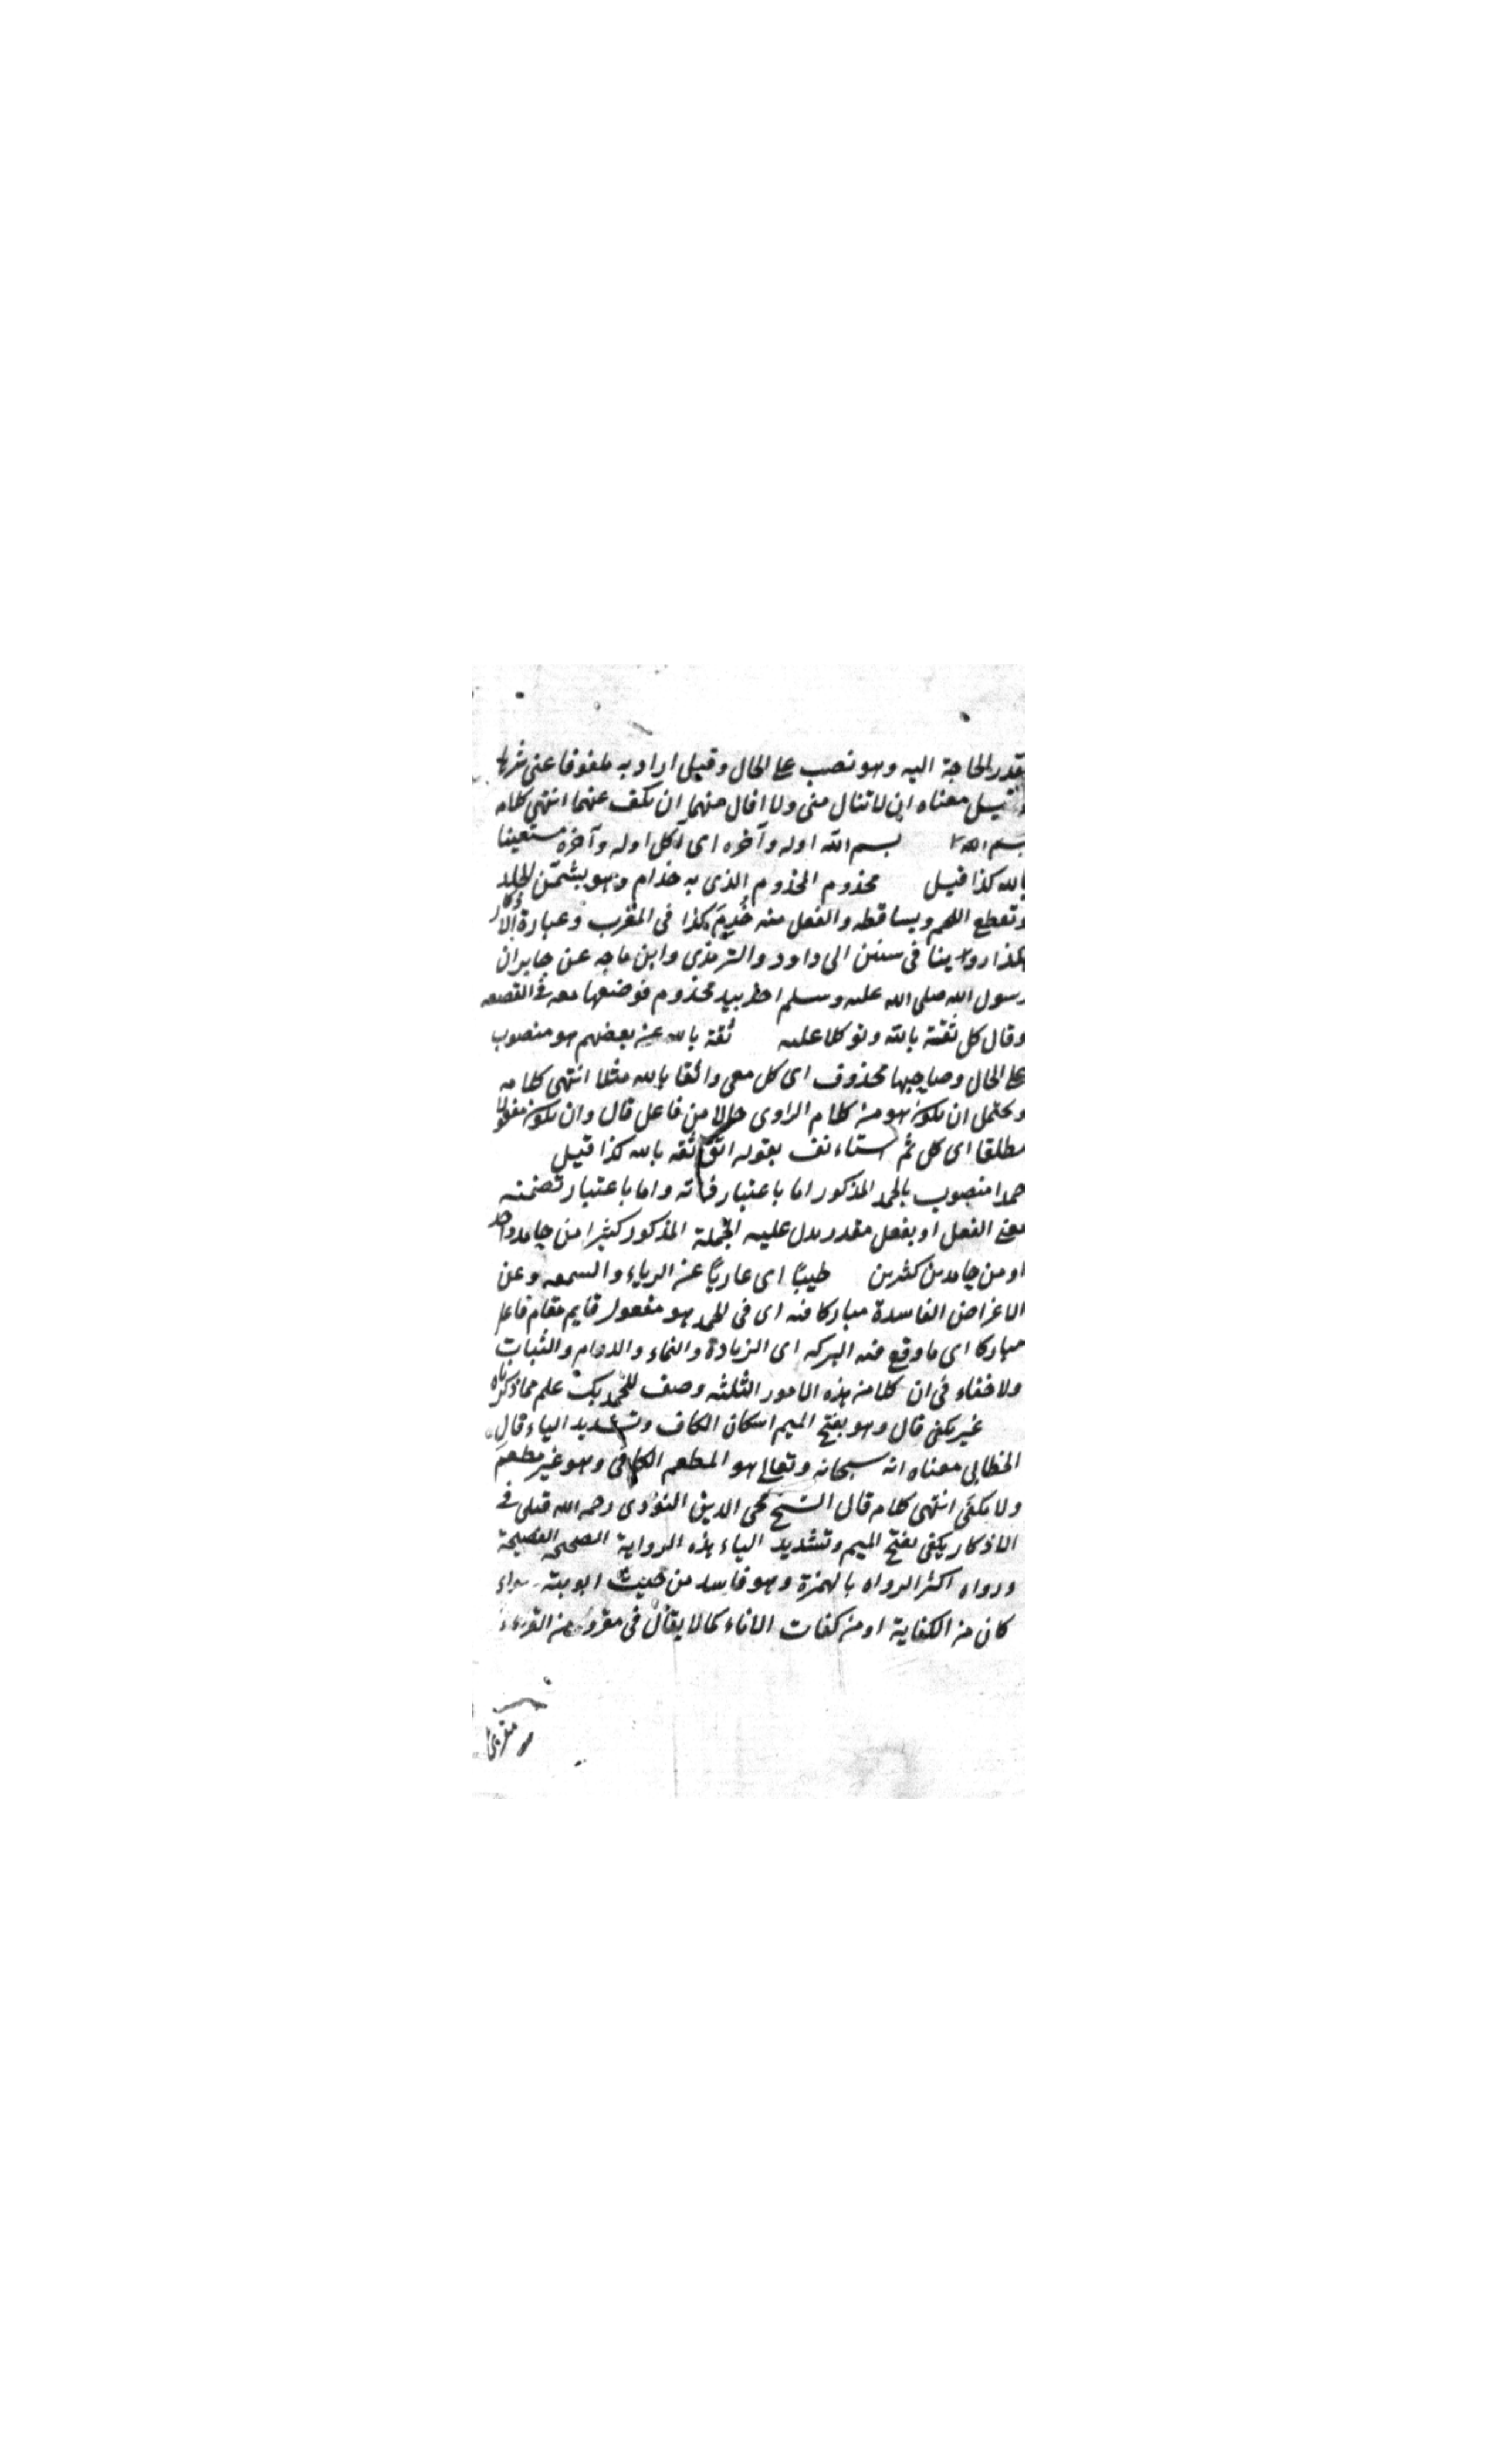 بقدر الحاجة اليه وهو نصب على الحال وقيل اراد به ملفوفا عنى شرها
وقيل معناه ان لا تنال منى ولا انال منها ان تكف عنها انتهى كلامه
بسم الله بسم الله اوله وآخره اى آكل اوله وآخره مستعينا
بالله كذا قيل مجذوم المجذوم الذى به جذام وهو تشقق الجلد
وتقطع اللحم وتساقطه والفعل منه جُذِمَ كذا فى المغرب وعبارة الاذكار
هكذا روينا فى سنن ابى داود والترمذى وابن ماجه عن جابر ان
رسول الله صلى الله عليه وسلم اخذ بيد مجذوم فوضعها معه فى القصعه
وقال كل ثقة بالله وتوكلا عليه ثقة بالله عن بعضهم هو منصوب
على الحال وصاحبها محذوف اى كل معى واثقا بالله مثلا انتهى كلامه
ويحتمل ان يكون هو من كلام الراوى حالا من فاعل قال وان يكون مفعولا
مطلقا اى كل ثم استاءنف بقوله اثق ثقه بالله كذا قيل
حمدا منصوب بالحمد المذكور اما باعتبار ذاته واما باعتبار تضمنه
معنى الفعل او بفعل مقدر يدل عليه الجملة المذكور كثيرا من حامد واحد
او من حامدين كثيرين طيبًا اى عاريًا عن الرياء والسمعه وعن
الاغراض الفاسدة مباركا فيه اى فى الحمد هو مفعول قايم مقام فاعل
مباركا اى ما وقع فيه البركه اى الزيادة والنماء والدوام والثبات
ولا خفاء فى ان كلا من هذه الامور الثلثه وصف للحمد علم مما ذكرناه
غير مكفى قال وهو بفتح الميم اسكان الكاف وتشديد الياء قال
الخطابى معناه انه سبحانه وتعالى هو المطعم الكافى وهو غير مطعم
ولا مكفى انتهى كلام قال الشيخ محى الدين النووى رحمه الله قبلى فى
الاذكار مكفى بفتح الميم وتشديد الياء هذه الرواية الصحيحه الفصيحة
ورواه اكثر الرواه بالهمزة وهو فاسد من حيث العربية سواء
كان من الكفاية او من كفات الاناء كما لا يقال فى مقروء من القرءة